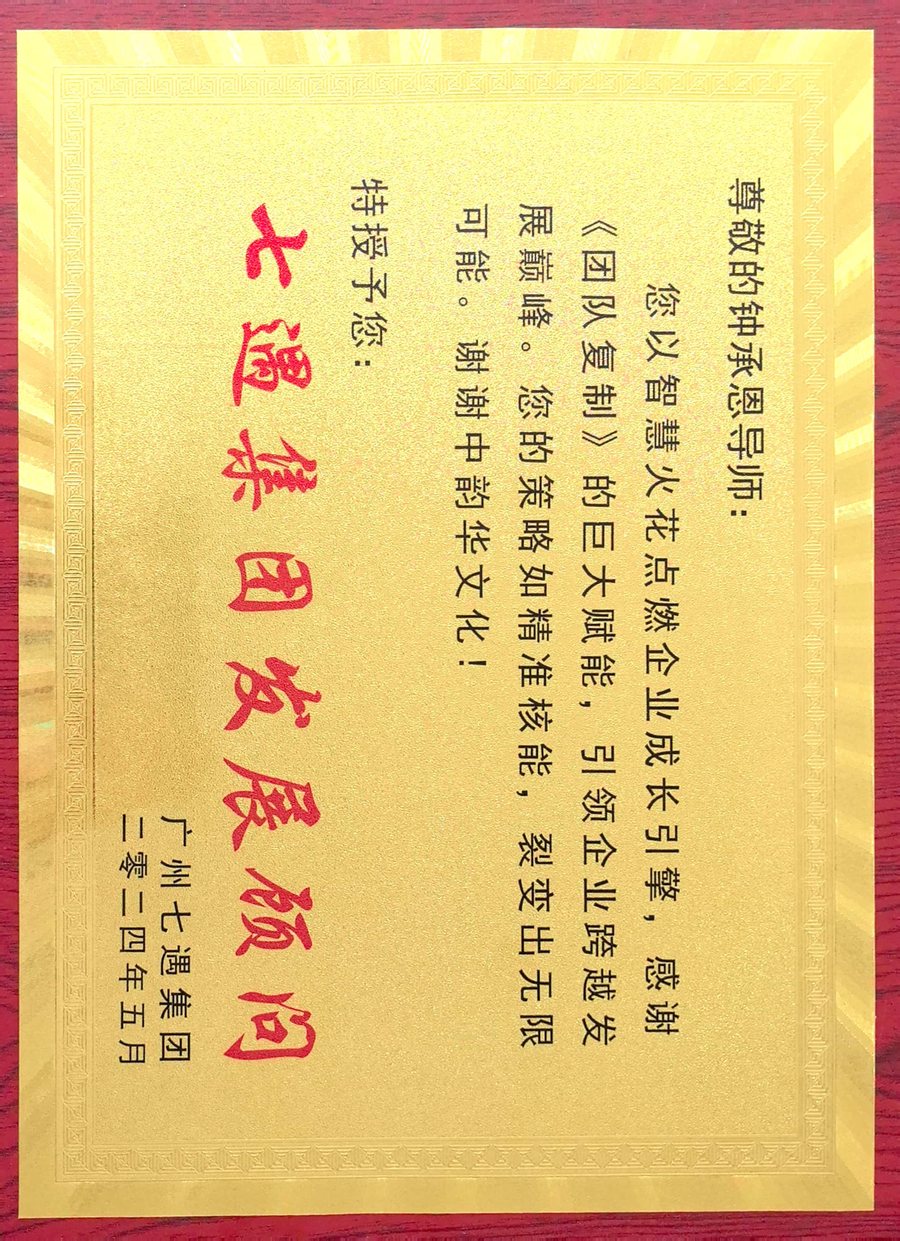 尊敬的钟承恩导师：
您以智慧火花点燃企业成长引擎，感谢
《团队复制》的巨大赋能，引领企业跨越发
展巅峰。您的策略如精准核能，裂变出无限
可能。谢谢中韵华文化！
特授予您：
七遇集团发展顾问
广州七遇集团
二零二四年五月